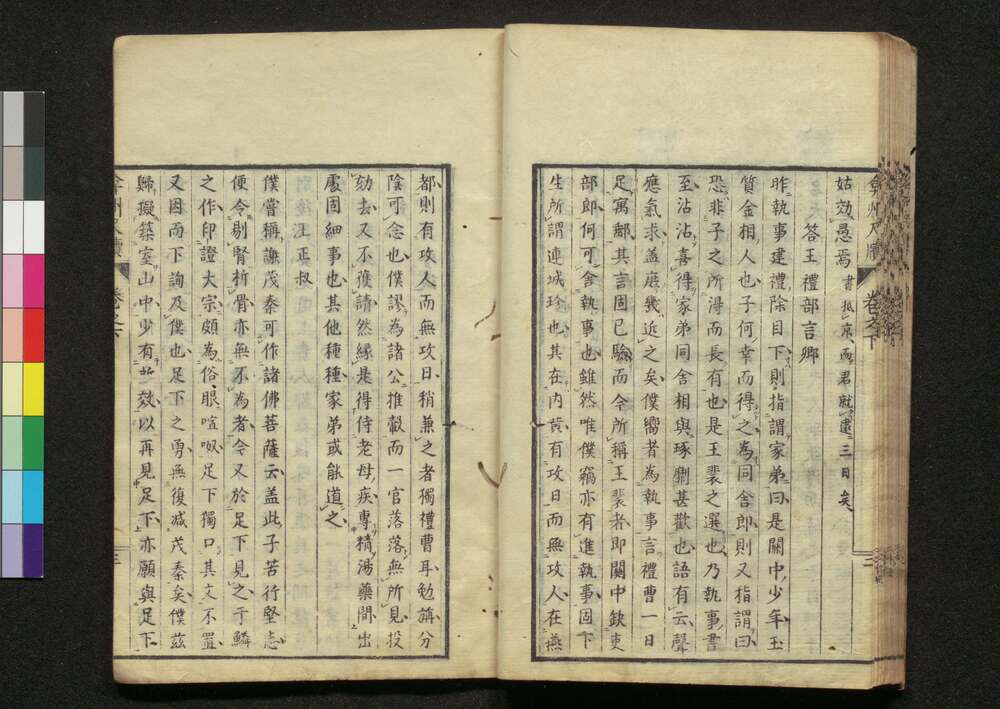 姑効愚焉書抵京而君就逮三日矣
答王禮部言卿
昨執事建禮除目下則指謂家弟曰是關中少年玉
質金相人也子何幸而得之為同舍郎則又指謂曰
恐非子之所淂而長有也是王裴之選也乃執事書
至沾沾喜得家弟同舍相與琢劘甚歡也語有云聲
應氣求盖庶幾近之矣僕嚮者為執事言禮曹一日
足寓郗其言固已驗而今所稱王裴者即關中欽吏
部郎何可舍執事也雖然唯僕竊亦有進執事固下
生所謂連城珍也其在内黄有攻日而無攻人在燕
都則有攻人而無攻日稍兼之者獨禮曹耳勉旃分
陰可念也僕謬為諸公推轂而一官落落無所見投
劾去又不獲請然緣是得侍老母疾專精湯藥間出
處固細事也其他種種家弟或能道之
復汪正叔
僕嘗稱謙茂秦可作諸佛菩薩云盖此子苦行堅忘
便令剔腎析骨亦無不為者今又於足下見之于鱗
之作印證大宗頗為俗眼喧呶足下獨口其文不置
又因而下詢及僕也足下之勇無復减茂秦矣僕茲
歸擬築室山中少有効以再見足下亦願與足下
卷之下
三